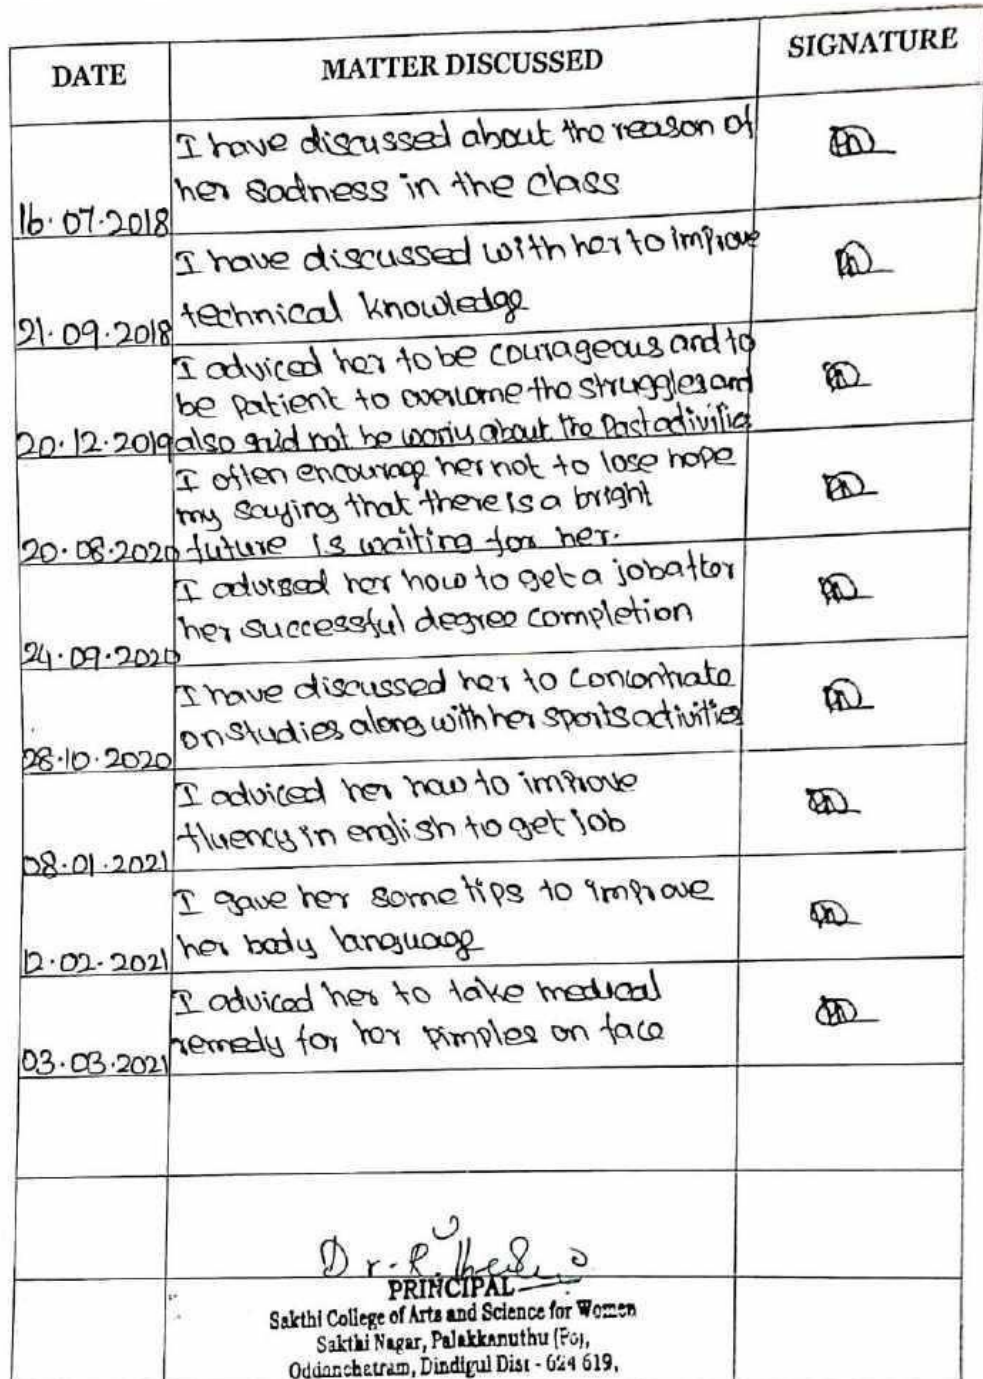 DATE MATTER DISCUSSED SIGNATURE
I have discussed about the reason of
her sadness in the class
16.07.2018
I have discussed with her to improve
technical knowledge
21.09.2018
I adviced her to be courageous and to
be patient to overcome the struggles and
20.12.2019 also said not be worry about the Past activities
I often encourage her not to lose hope
my saying that there is a bright
20.08.2020 future is waiting for her.
I advised her how to get a job after
her successful degree completion
24.09.2020
I have discussed her to concentrate
on studies along with her sports activities
28.10.2020
I adviced her how to improve
fluency in english to get job
08.01.2021
I gave her some tips to improve
her body language
12.02.2021
I adviced her to take medical
remedy for her pimples on face
03.03.2021
Dr. R.
PRINCIPAL
Sakthi College of Arts and Science for Women
Sakthi Nagar, Palakkanuthu (Po),
Oddanchatram, Dindigul Dist - 624 619.